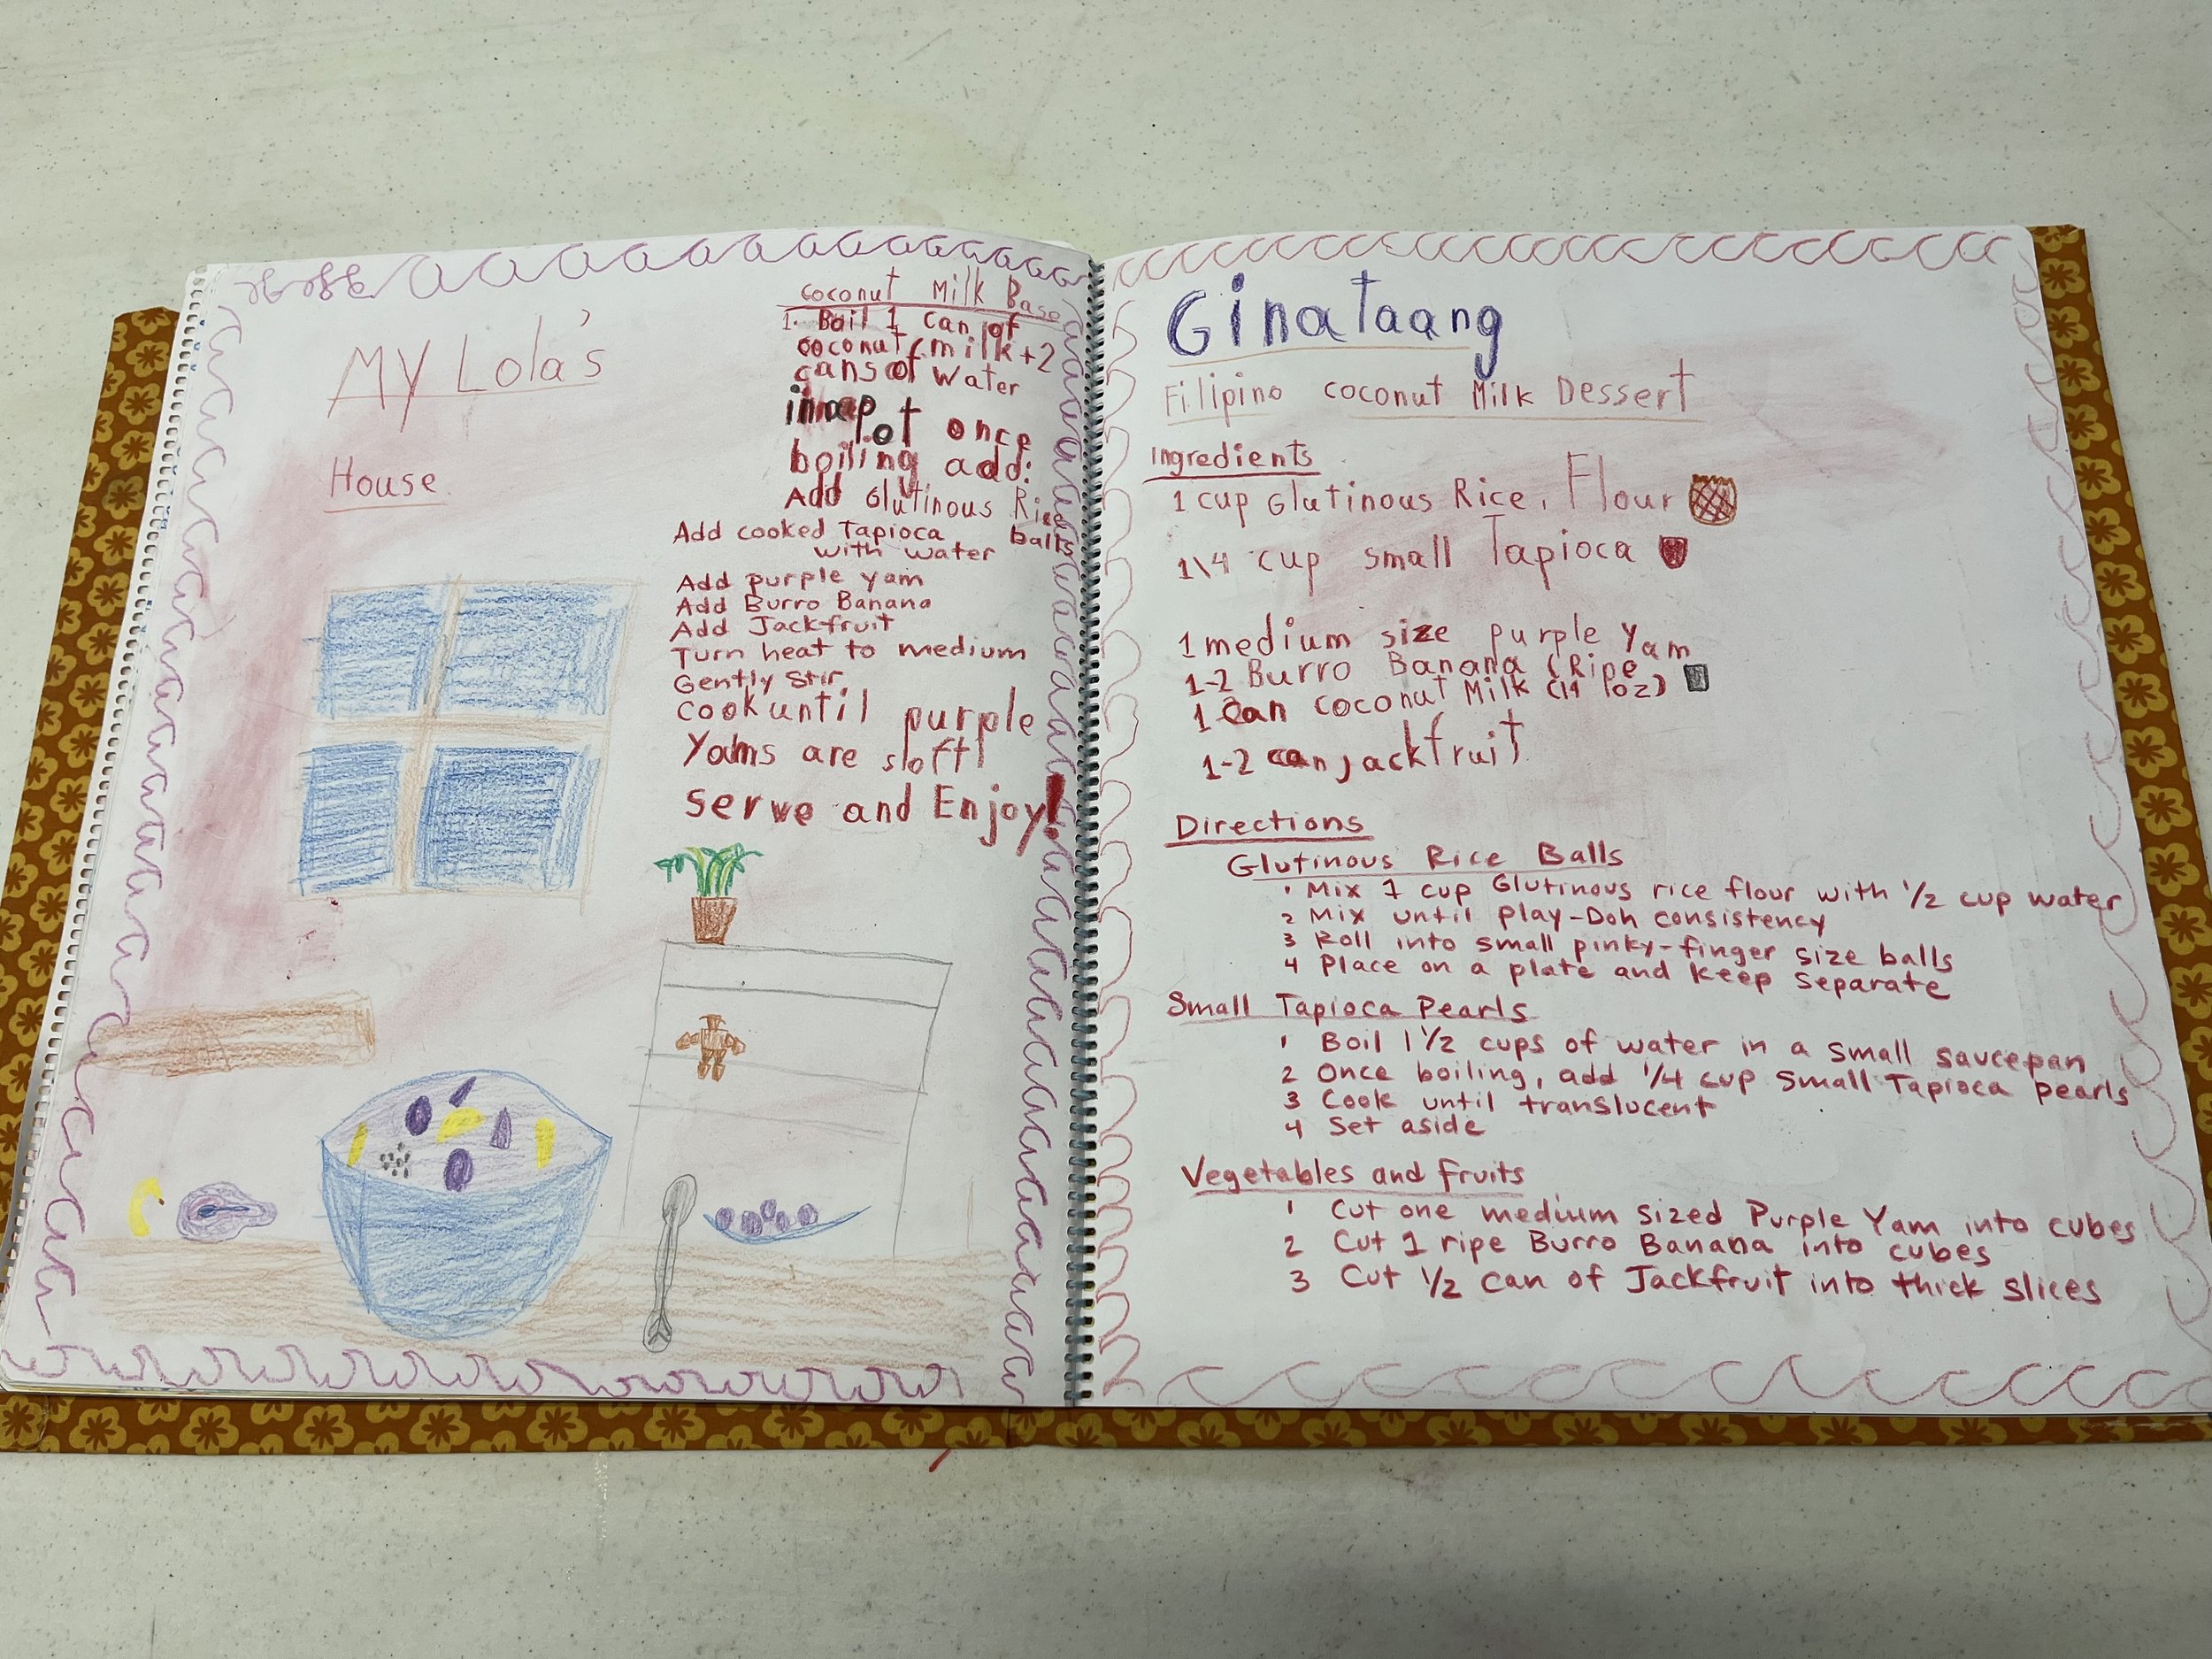 My Lola's
House
Coconut Milk Base
1. Boil 1 can of
coconut milk + 2
cans of water
in a pot once
boiling add:
Add Glutinous Rice
balls
Add cooked Tapioca
with water
Add purple yam
Add Burro Banana
Add Jackfruit
Turn heat to medium
Gently Stir
cook until purple
Yams are soft
serve and Enjoy!
Ginataang
Filipino coconut Milk Dessert
Ingredients
1 cup Glutinous Rice, Flour
1\4 cup small Tapioca
1 medium size purple Yam
1-2 Burro Banana (Ripe
1 Can coconut Milk (14 foz)
1-2 can jackfruit
Directions
Glutinous Rice Balls
1 Mix 1 cup Glutinous rice flour with 1/2 cup water
2 Mix until play-Doh consistency
3 Roll into small pinky-finger size balls
4 Place on a plate and keep separate
Small Tapioca Pearls
1 Boil 1 1/2 cups of water in a small saucepan
2 Once boiling, add 1/4 cup Small Tapioca pearls
3 Cook until translucent
4 Set aside
Vegetables and fruits
1 Cut one medium sized Purple Yam into cubes
2 Cut 1 ripe Burro Banana into cubes
3 Cut 1/2 can of Jackfruit into thick slices